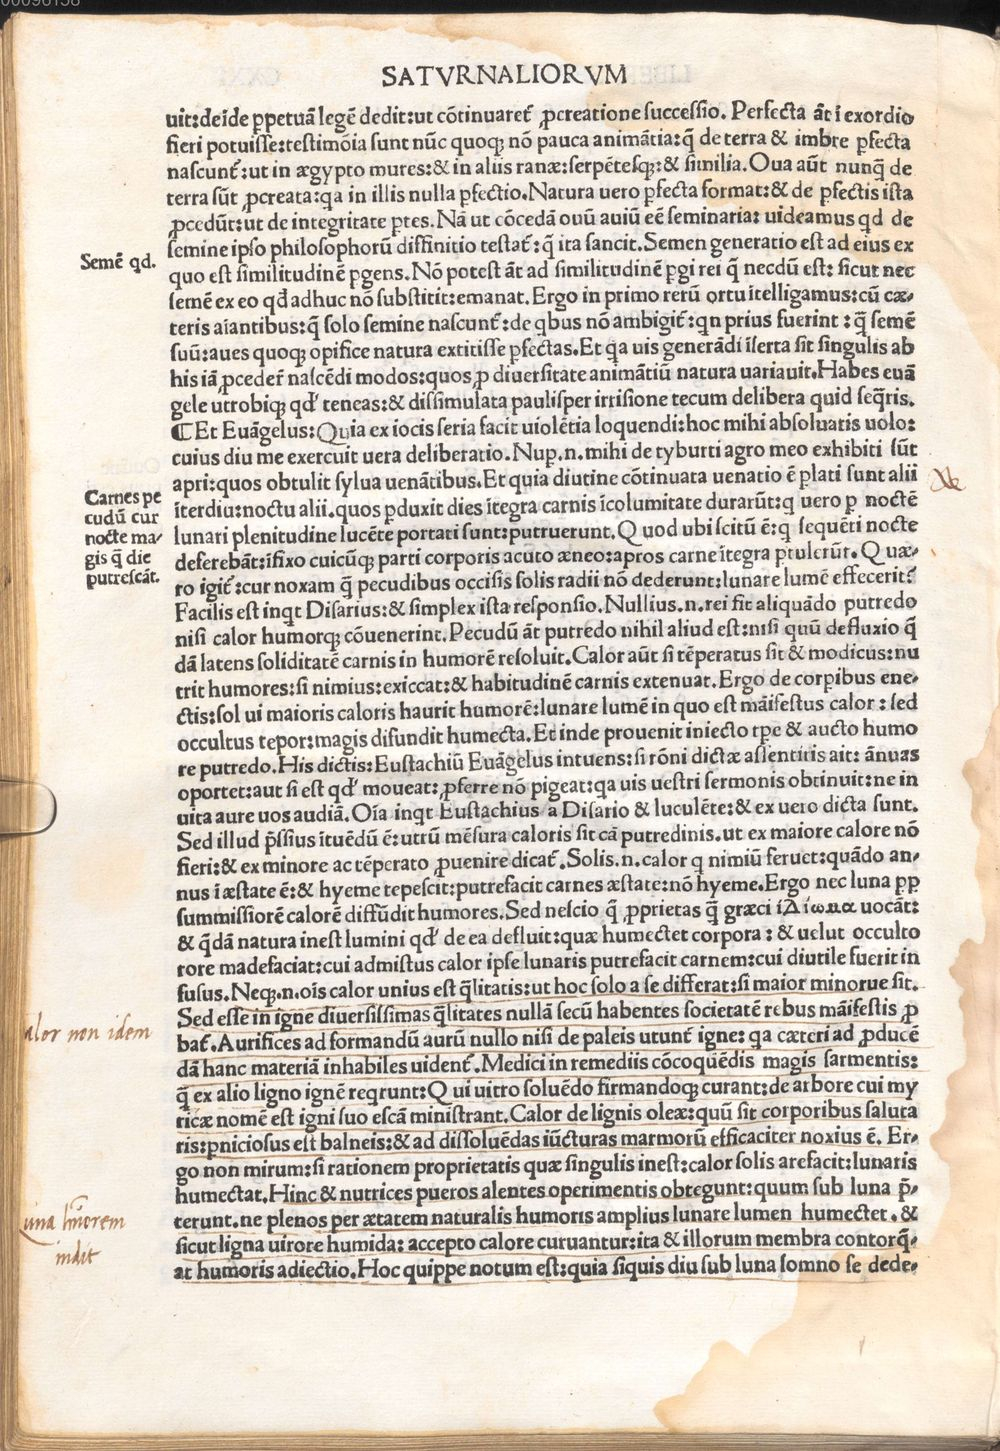 SATVRNALIORVM
uit:deĩde ꝑpetuã legẽ dedit:ut cõtinuaret̃ ꝓcreatione successio. Perfecta ãt ĩ exordio
fieri potuisse:testimõia sunt nũc quoqꝫ nõ pauca animãtia:q̃ de terra & imbre ꝑfecta
nascunt̃:ut in ægypto mures:& in aliis ranæ:serpẽtesqꝫ:& similia. Oua aũt nunq̃ de
terra sũt ꝓcreata:qa in illis nulla ꝑfectio. Natura uero ꝑfecta format:& de ꝑfectis ista
ꝓcedũt:ut de integritate ꝑtes. Nã ut cõcedã ouũ auiũ eẽ seminaria: uideamus qd de
semine ipso philosophorũ diffinitio testat̃:q̃ ita sancit. Semen generatio est ad eius ex
Semẽ qd.
quo est similitudinẽ pgens. Nõ potest ãt ad similitudinẽ pgi rei q̃ necdũ est: sicut nec
semẽ ex eo qđ adhuc nõ substitit:emanat. Ergo in primo rerũ ortu ĩtelligamus:cũ cæ-
teris aĩantibus:q̃ solo semine nascunt̃:de qbus nõ ambigit̃:qn prius fuerint:q̃ semẽ
suũ:aues quoqꝫ opifice natura extitisse ꝑfectas. Et qa uis generãdi ĩserta sit singulis ab
his iã ꝓceder̃ nascẽdi modos:quos ꝓ diuersitate animãtiũ natura uariauit. Habes euã
gele utrobiqꝫ qđ teneas:& dissimulata paulisper irrisione tecum delibera quid seq̃ris.
⁋Et Euãgelus:Quia ex iocis seria facit uiolẽtia loquendi:hoc mihi absoluatis uolo:
cuius diu me exercuit uera deliberatio. Nuꝑ.n.mihi de tyburti agro meo exhibiti sũt
apri:quos obtulit sylua uenãtibus. Et quia diutine cõtinuata uenatio ẽ ꝑlati sunt alii
Carnes pe
cudũ cur
nocte ma-
gis q̃ die
putrescãt.
ĩterdiu:noctu alii.quos ꝑduxit dies ĩtegra carnis ĩcolumitate durarũt:q uero ꝑ noctẽ
lunari plenitudine lucẽte portati sunt:putruerunt. Quod ubi scitũ ẽ:q sequẽti nocte
deferebãt:ĩfixo cuicũqꝫ parti corporis acuto æneo:apros carne ĩtegra ꝑtulerũt. Quæ-
ro igit̃:cur noxam q̃ pecudibus occisis solis radii nõ dederunt:lunare lumẽ effecerit?
Facilis est inqt Disarius:& simplex ista responsio. Nullius.n.rei fit aliquãdo putredo
nisi calor humorqꝫ cõuenerint. Pecudũ ãt putredo nihil aliud est:nisi quũ defluxio q̃
dã latens soliditatẽ carnis in humorẽ resoluit. Calor aũt si tẽperatus sit & modicus:nu
trit humores:si nimius:exiccat:& habitudinẽ carnis extenuat. Ergo de corꝑibus ene-
ctis:sol ui maioris caloris haurit humorẽ:lunare lumẽ in quo est mãifestus calor: sed
occultus tepor:magis difundit humecta. Et inde prouenit iniecto tꝑe & aucto humo
re putredo. His dictis:Eustachiũ Euãgelus intuens:si rõni dictæ assentiris ait: ãnuas
oportet:aut si est qđ moueat:ꝓferre nõ pigeat:qa uis uestri sermonis obtinuit:ne in
uita aure uos audiã. Oĩa inqt Eustachius a Disario & luculẽte:& ex uero dicta sunt.
Sed illud p̃ssius ĩtuẽdũ ẽ:utrũ mẽsura caloris sit cã putredinis.ut ex maiore calore nõ
fieri:& ex minore ac tẽperato ꝓuenire dicat̃. Solis.n.calor q nimiũ feruet:quãdo an-
nus ĩ æstate ẽ:& hyeme tepescit:putrefacit carnes æstate:nõ hyeme. Ergo nec luna ꝓꝑ
summissiorẽ calorẽ diffũdit humores. Sed nescio q̃ ꝓprietas q̃ græci ἰΔίωμα uocãt:
& q̃dã natura inest lumini qđ de ea defluit:quæ humectet corpora: & uelut occulto
rore madefaciat:cui admistus calor ipse lunaris putrefacit carnem:cui diutile fuerit in
fusus. Neqꝫ.n.oĩs calor unius est q̃litatis:ut hoc solo a se differat:si maior minorue sit.
Sed esse in igne diuersissimas q̃litates nullã secũ habentes societatẽ rebus mãifestis ꝓ
alor non idem
bat̃. Aurifices ad formandũ aurũ nullo nisi de paleis utunt̃ igne: qa cæteri ad ꝓducẽ
dã hanc materiã inhabiles uident̃. Medici in remediis cõcoquẽdis magis sarmentis:
q̃ ex alio ligno ignẽ reqrunt:Qui uitro soluẽdo firmandoqꝫ curant:de arbore cui my
ricæ nomẽ est igni suo escã ministrant. Calor de lignis oleæ:quũ sit corporibus saluta
ris:ꝑniciosus est balneis:& ad dissoluẽdas iũcturas marmorũ efficaciter noxius ẽ. Er-
go non mirum:si rationem proprietatis quæ singulis inest:calor solis arefacit:lunaris
humectat. Hinc & nutrices pueros alentes operimentis obtegunt:quum sub luna p̃-
una hũorem
indit
terunt.ne plenos per ætatem naturalis humoris amplius lunare lumen humectet. &
sicut ligna uirore humida: accepto calore curuantur:ita & illorum membra contorq̃-
at humoris adiectio. Hoc quippe notum est:quia siquis diu sub luna somno se dede-